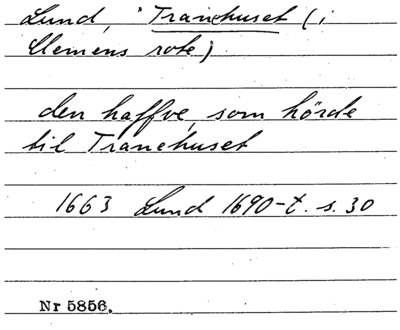 Lund, *Tranehuset (i
Clemens rote)
den haffve, som hörde
til Tranehuset
1663 Lund 1690-t. s. 30
Nr 5856.